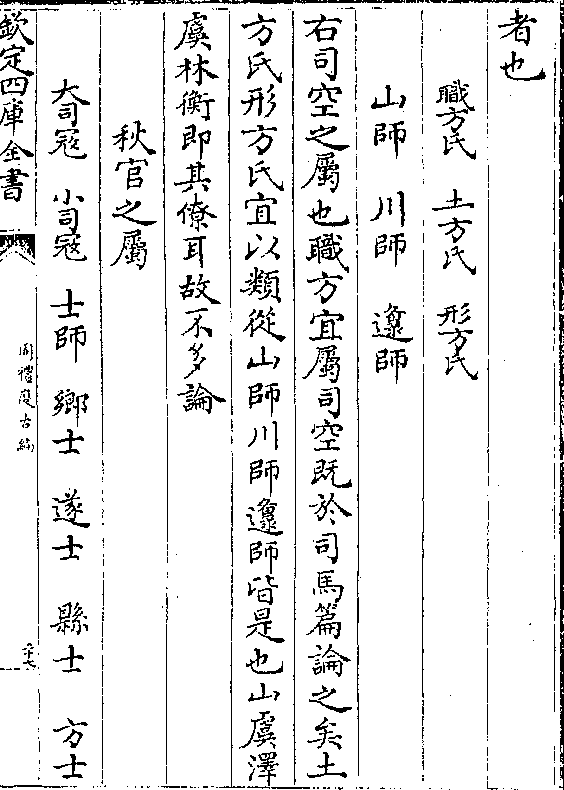 者也
職方氏　土方氏　形方氏
山師　川師　邍師
右司空之屬也職方宜屬司空既於司馬篇論之矣土
方氏形方氏宜以類從山師川師邍師皆是也山虞澤
虞林衡即其僚耳故不多論
秋官之屬
大司寇　小司寇　士師　鄉士　遂士　縣士　方士
欽定四庫全書
周禮復古編
二十七